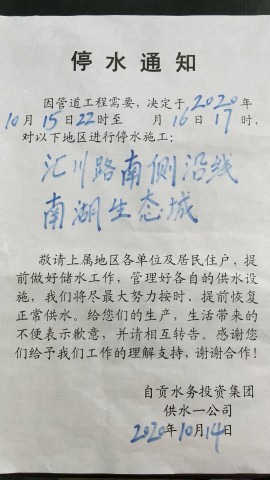 停水通知
因管道工程需要，决定于2020年
10月15日22时至 月16日17时，
对以下地区进行停水施工：
汇川路南侧沿线
南湖生态城
敬请上属地区各单位及居民住户，提
前做好储水工作，管理好各自的供水设
施，我们将尽最大努力按时、提前恢复
正常供水。给您们的生产，生活带来的
不便表示歉意，并请相互转告。感谢您
们给予我们工作的理解支持，谢谢合作！
自贡水务投资集团
供水一公司
2020年10月14日